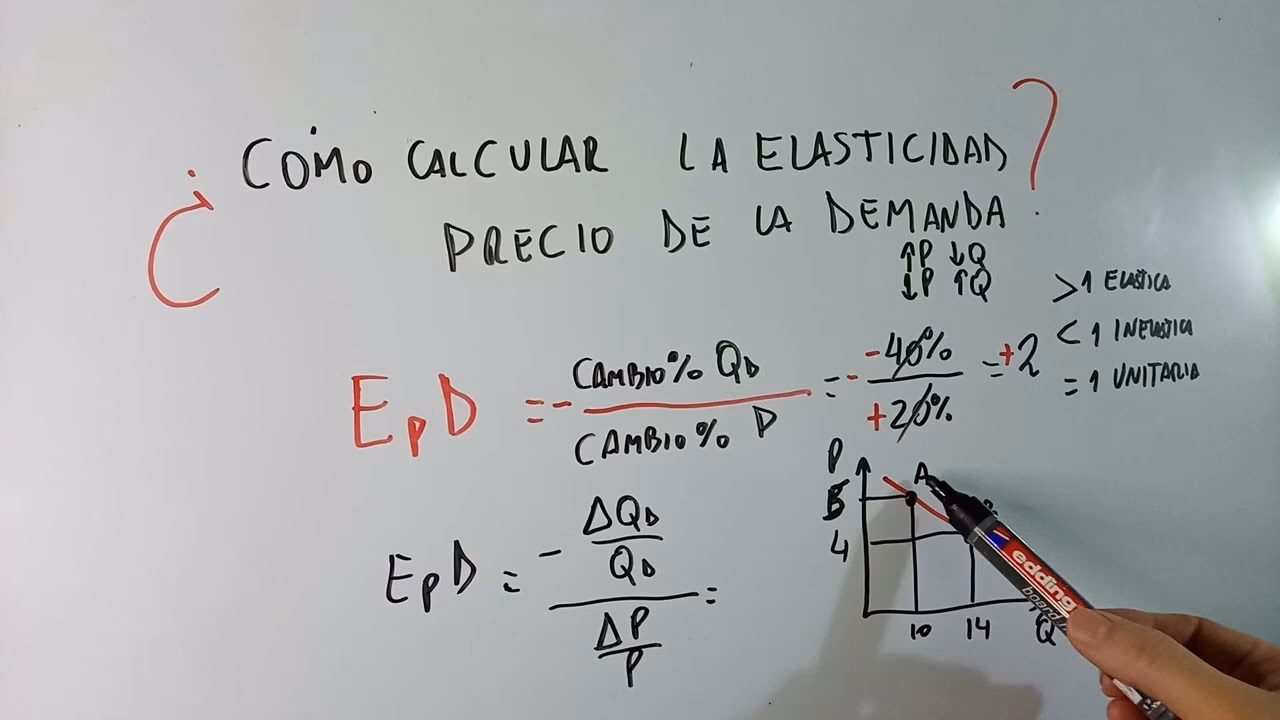 ¿CÓMO CALCULAR LA ELASTICIDAD
PRECIO DE LA DEMANDA?
↑P ↓Q
↓P ↑Q
>1 ELASTICA
<1 INELASTICA
=1 UNITARIA
EPD = - CAMBIO% QD / CAMBIO% P = - -40% / +20% = +2
EPD = - ΔQD/QD / ΔP/P =
P
A
5
4
10 14 Q
edding
board